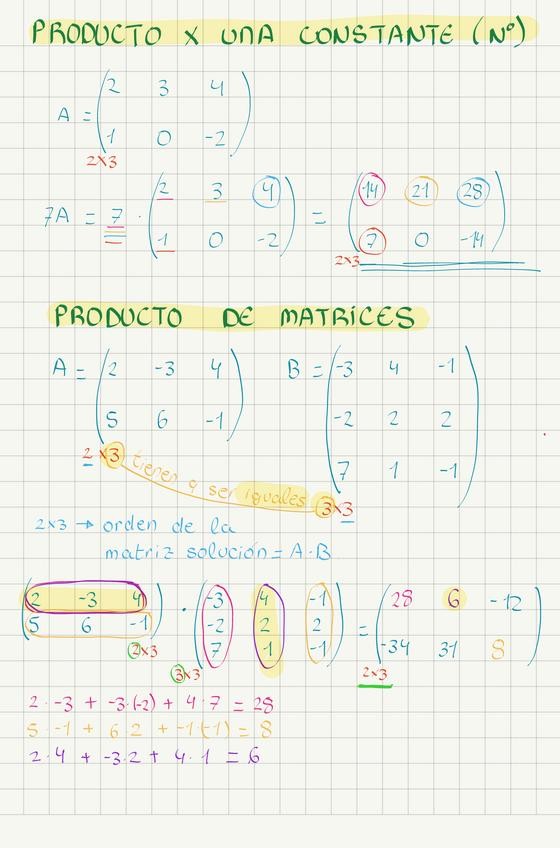 PRODUCTO X UNA CONSTANTE (Nº)
2 3 4
A =
1 0 -2
2x3
7A = 7 · ( 2 3 4 ) = ( 14 21 28 )
1 0 -2 7 0 -14
2x3
PRODUCTO DE MATRICES
A = ( 2 -3 4 ) B = ( -3 4 -1 )
5 6 -1 -2 2 2
7 1 -1
2x3 tienen q ser iguales 3x3
2x3 → orden de la
matriz solución = A·B
( 2 -3 4 ) · ( -3 4 -1 ) = ( 28 6 -12 )
5 6 -1 -2 2 2 -34 31 8
7 1 -1
2x3 3x3 2x3
2·-3 + -3·(-2) + 4·7 = 28
5·-1 + 6·2 + -1·(-1) = 8
2·4 + -3·2 + 4·1 = 6